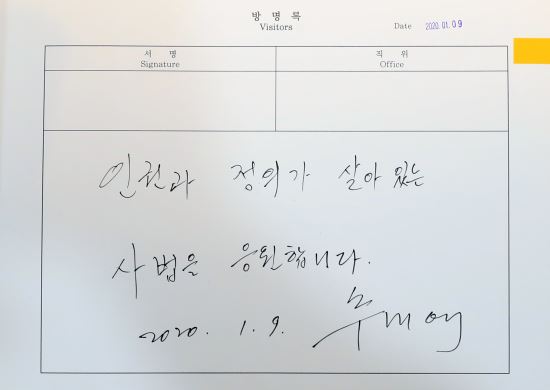 방 명 록
Visitors
Date 2020.01.09
서 명
Signature
직 위
Office
인권과 정의가 살아 있는
사법을 응원합니다.
2020. 1. 9.